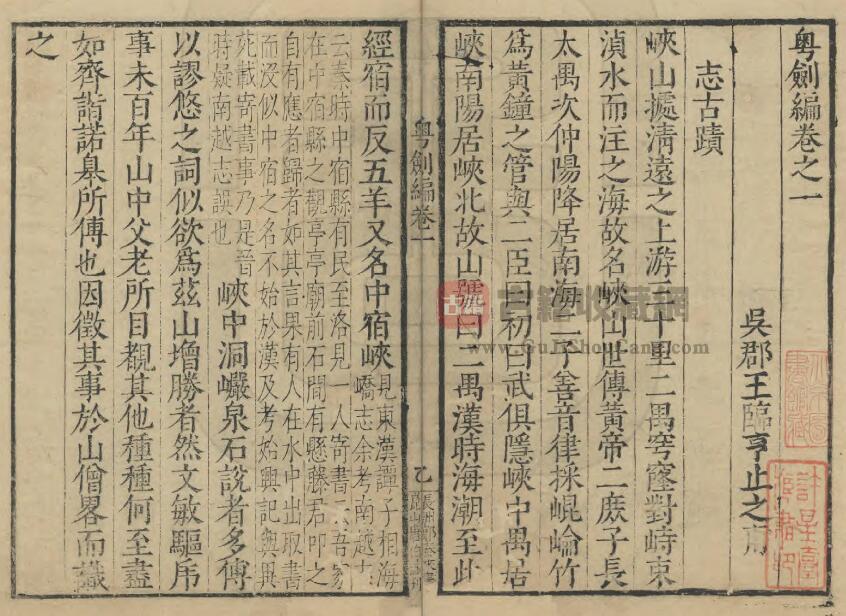 粤劍編卷之一
吳郡王臨亨止之甫
志古蹟
峽山據清遠之上游三十里二禺穹窿對峙東
湞水而注之海故名峽山世傳黃帝二庶子長
太禺次仲陽降居南海二子善音律採崐崘竹
爲黃鐘之管與二臣曰初曰武俱隱峽中禺居
峽南陽居峽北故山號曰二禺漢時海潮至此
粤劍編卷一
乙
經宿而反五羊又名中宿峽
見東漢譚子相海
嶠志余考南越志
云秦時中宿縣有民至洛見一人寄書云吾家
在中宿縣之觀亭亭廟前石間有懸藤君叩之
自有應者歸者如其言果有人在水中出取書
而没似中宿之名不始於漢及考始興記與異
苑載寄書事乃是晉
時疑南越志誤也
峽中洞巖泉石說者多傳
以謬悠之詞似欲爲茲山增勝者然文敏驅帋
事未百年山中父老所目覩其他種種何至盡
如齊諧諾臯所傳也因徵其事於山僧畧而識
之
古籍
古籍收藏網
www.GuJiShouCang.com